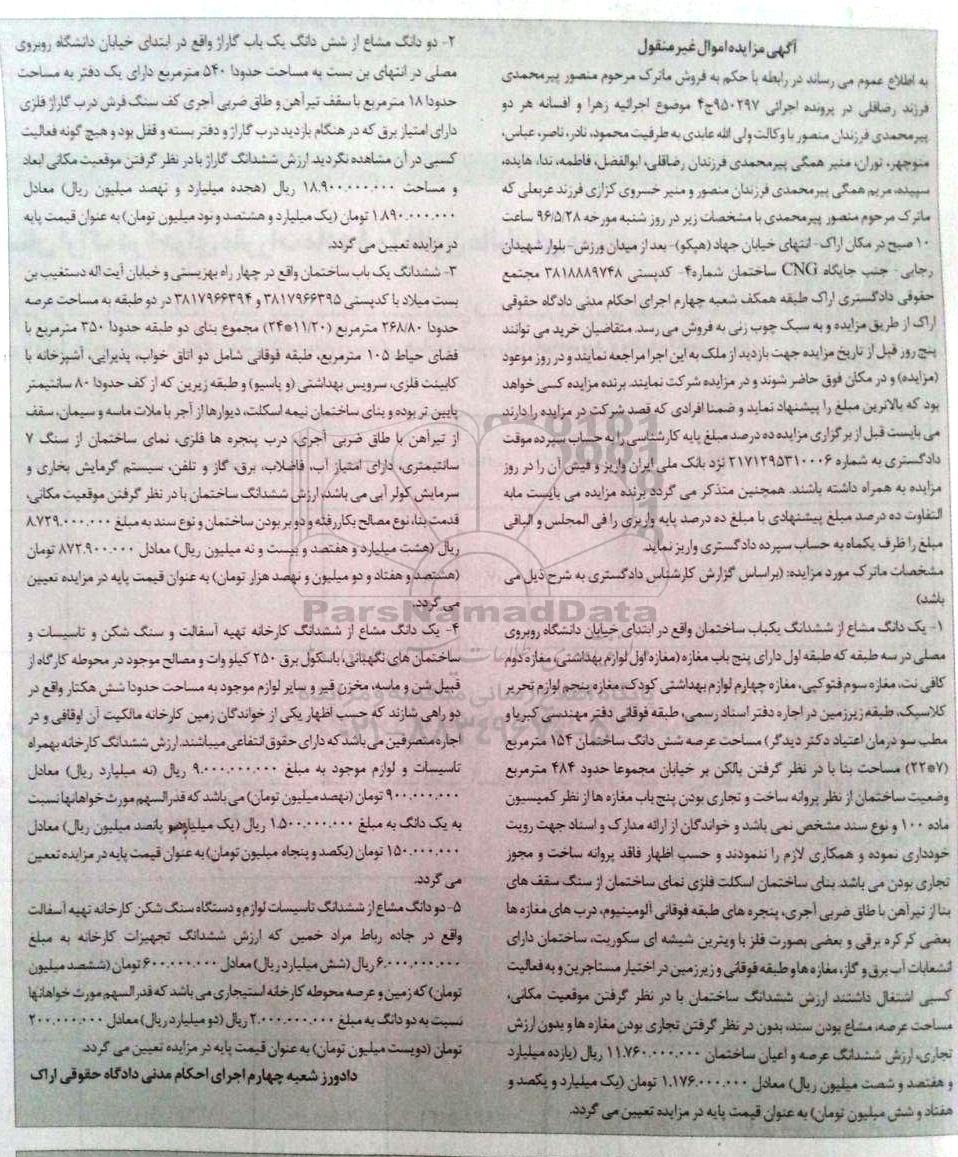 آگهی مزایده اموال غیر منقول
به اطلاع عموم می رساند در رابطه با حکم به فروش ماترک مرحوم منصور پیرمحمدی
فرزند رضاقلی در پرونده اجرائی ۹۵۰۲۹۷ج۴ موضوع اجرائیه زهرا و افسانه هر دو
پیرمحمدی فرزندان منصور با وکالت ولی الله عابدی به طرفیت محمود، نادر، ناصر، عباس،
منوچهر، توران، منیر همگی پیرمحمدی فرزندان رضاقلی، ابوالفضل، فاطمه، ندا، هایده،
سپیده، مریم همگی پیرمحمدی فرزندان منصور و منیر خسروی کزازی فرزند عربعلی که
ماترک مرحوم منصور پیرمحمدی با مشخصات زیر در روز شنبه مورخه ۹۶/۵/۲۸ ساعت
۱۰ صبح در مکان اراک- انتهای خیابان جهاد (هپکو)- بعد از میدان ورزش- بلوار شهیدان
رجایی- جنب جایگاه CNG ساختمان شماره۴- کدپستی ۳۸۱۸۸۸۹۷۴۸ مجتمع
حقوقی دادگستری اراک طبقه همکف شعبه چهارم اجرای احکام مدنی دادگاه حقوقی
اراک از طریق مزایده و به سبک چوب زنی به فروش می رسد. متقاضیان خرید می توانند
پنج روز قبل از تاریخ مزایده جهت بازدید از ملک به این اجرا مراجعه نمایند و در روز موعود
(مزایده) و در مکان فوق حاضر شوند و در مزایده شرکت نمایند. برنده مزایده کسی خواهد
بود که بالاترین مبلغ را پیشنهاد نماید و ضمنا افرادی که قصد شرکت در مزایده را دارند
می بایست قبل از برگزاری مزایده ده درصد مبلغ پایه کارشناسی را به حساب سپرده موقت
دادگستری به شماره ۲۱۷۱۲۹۵۳۱۰۰۰۶ نزد بانک ملی ایران واریز و فیش آن را در روز
مزایده به همراه داشته باشند. همچنین متذکر می گردد برنده مزایده می بایست مابه
التفاوت ده درصد مبلغ پیشنهادی با مبلغ ده درصد پایه واریزی را فی المجلس و الباقی
مبلغ را ظرف یکماه به حساب سپرده دادگستری واریز نماید.
مشخصات ماترک مورد مزایده: (براساس گزارش کارشناس دادگستری به شرح ذیل می
باشد)
۱- یک دانگ مشاع از ششدانگ یکباب ساختمان واقع در ابتدای خیابان دانشگاه روبروی
مصلی در سه طبقه که طبقه اول دارای پنج باب مغازه (مغازه اول لوازم بهداشتی، مغازه دوم
کافی نت، مغازه سوم فتوکپی، مغازه چهارم لوازم بهداشتی کودک، مغازه پنجم لوازم تحریر
کلاسیک، طبقه زیرزمین در اجاره دفتر اسناد رسمی، طبقه فوقانی دفتر مهندسی کبریا و
مطب سو درمان اعتیاد دکتر دیدگر) مساحت عرصه شش دانگ ساختمان ۱۵۴ مترمربع
(۷*۲۲) مساحت بنا با در نظر گرفتن بالکن بر خیابان مجموعا حدود ۴۸۴ مترمربع
وضعیت ساختمان از نظر پروانه ساخت و تجاری بودن پنج باب مغازه ها از نظر کمیسیون
ماده ۱۰۰ و نوع سند مشخص نمی باشد و خواندگان از ارائه مدارک و اسناد جهت رویت
خودداری نموده و همکاری لازم را ننمودند و حسب اظهار فاقد پروانه ساخت و مجوز
تجاری بودن می باشد. بنای ساختمان اسکلت فلزی نمای ساختمان از سنگ سقف های
بنا از تیرآهن با طاق ضربی آجری، پنجره های طبقه فوقانی آلومینیوم، درب های مغازه ها
بعضی کرکره برقی و بعضی بصورت فلز با ویترین شیشه ای سکوریت، ساختمان دارای
انشعابات آب برق و گاز، مغازه ها و طبقه فوقانی و زیرزمین در اختیار مستاجرین و به فعالیت
کسبی اشتغال داشتند ارزش ششدانگ ساختمان با در نظر گرفتن موقعیت مکانی،
مساحت عرصه، مشاع بودن سند، بدون در نظر گرفتن تجاری بودن مغازه ها و بدون ارزش
تجاری، ارزش ششدانگ عرصه و اعیان ساختمان ۱۱.۷۶۰.۰۰۰.۰۰۰ ریال (یازده میلیارد
و هفتصد و شصت میلیون ریال) معادل ۱.۱۷۶.۰۰۰.۰۰۰ تومان (یک میلیارد و یکصد و
هفتاد و شش میلیون تومان) به عنوان قیمت پایه در مزایده تعیین می گردد.
۲- دو دانگ مشاع از شش دانگ یک باب گاراژ واقع در ابتدای خیابان دانشگاه روبروی
مصلی در انتهای بن بست به مساحت حدودا ۵۴۰ مترمربع دارای یک دفتر به مساحت
حدودا ۱۸ مترمربع با سقف تیرآهن و طاق ضربی آجری کف سنگ فرش درب گاراژ فلزی
دارای امتیاز برق که در هنگام بازدید درب گاراژ و دفتر بسته و قفل بود و هیچ گونه فعالیت
کسبی در آن مشاهده نگردید. ارزش ششدانگ گاراژ با در نظر گرفتن موقعیت مکانی ابعاد
و مساحت ۱۸.۹۰۰.۰۰۰.۰۰۰ ریال (هجده میلیارد و نهصد میلیون ریال) معادل
۱.۸۹۰.۰۰۰.۰۰۰ تومان (یک میلیارد و هشتصد و نود میلیون تومان) به عنوان قیمت پایه
در مزایده تعیین می گردد.
۳- ششدانگ یک باب ساختمان واقع در چهار راه بهزیستی و خیابان آیت اله دستغیب بن
بست میلاد با کدپستی ۳۸۱۷۹۶۶۳۹۵ و ۳۸۱۷۹۶۶۳۹۴ در دو طبقه به مساحت عرصه
حدودا ۲۶۸/۸۰ مترمربع (۱۱/۲۰*۲۴) مجموع بنای دو طبقه حدودا ۳۵۰ مترمربع با
فضای حیاط ۱۰۵ مترمربع، طبقه فوقانی شامل دو اتاق خواب، پذیرایی، آشپزخانه با
کابینت فلزی، سرویس بهداشتی (و پاسیو) و طبقه زیرین که از کف حدودا ۸۰ سانتیمتر
پایین تر بوده و بنای ساختمان نیمه اسکلت، دیوارها از آجر با ملات ماسه و سیمان، سقف
از تیرآهن با طاق ضربی آجری، درب پنجره ها فلزی، نمای ساختمان از سنگ ۷
سانتیمتری، دارای امتیاز آب، فاضلاب، برق، گاز و تلفن، سیستم گرمایش بخاری و
سرمایش کولر آبی می باشد، ارزش ششدانگ ساختمان با در نظر گرفتن موقعیت مکانی،
قدمت بنا، نوع مصالح بکاررفته و دو بر بودن ساختمان و نوع سند به مبلغ ۸.۷۲۹.۰۰۰.۰۰۰
ریال (هشت میلیارد و هفتصد و بیست و نه میلیون ریال) معادل ۸۷۲.۹۰۰.۰۰۰ تومان
(هشتصد و هفتاد و دو میلیون و نهصد هزار تومان) به عنوان قیمت پایه در مزایده تعیین
می گردد.
۴- یک دانگ مشاع از ششدانگ کارخانه تهیه آسفالت و سنگ شکن و تاسیسات و
ساختمان های نگهبانی، باسکول برق ۲۵۰ کیلو وات و مصالح موجود در محوطه کارگاه از
قبیل شن و ماسه، مخزن قیر و سایر لوازم موجود به مساحت حدودا شش هکتار واقع در
دو راهی شازند که حسب اظهار یکی از خواندگان زمین کارخانه مالکیت آن اوقافی و در
اجاره متصرفین می باشد که دارای حقوق انتفاعی میباشند. ارزش ششدانگ کارخانه بهمراه
تاسیسات و لوازم موجود به مبلغ ۹.۰۰۰.۰۰۰.۰۰۰ ریال (نه میلیارد ریال) معادل
۹۰۰.۰۰۰.۰۰۰ تومان (نهصد میلیون تومان) می باشد که قدرالسهم مورث خواهانها نسبت
به یک دانگ به مبلغ ۱.۵۰۰.۰۰۰.۰۰۰ ریال (یک میلیارد و پانصد میلیون ریال) معادل
۱۵۰.۰۰۰.۰۰۰ تومان (یکصد و پنجاه میلیون تومان) به عنوان قیمت پایه در مزایده تععین
می گردد.
۵- دو دانگ مشاع از ششدانگ تاسیسات لوازم و دستگاه سنگ شکن کارخانه تهیه آسفالت
واقع در جاده رباط مراد خمین که ارزش ششدانگ تجهیزات کارخانه به مبلغ
۶.۰۰۰.۰۰۰.۰۰۰ ریال (شش میلیارد ریال) معادل ۶۰۰.۰۰۰.۰۰۰ تومان (ششصد میلیون
تومان) که زمین و عرصه محوطه کارخانه استیجاری می باشد که قدرالسهم مورث خواهانها
نسبت به دو دانگ به مبلغ ۲.۰۰۰.۰۰۰.۰۰۰ ریال (دو میلیارد ریال) معادل ۲۰۰.۰۰۰.۰۰۰
تومان (دویست میلیون تومان) به عنوان قیمت پایه در مزایده تعیین می گردد.
دادورز شعبه چهارم اجرای احکام مدنی دادگاه حقوقی اراک
ParsNamadData